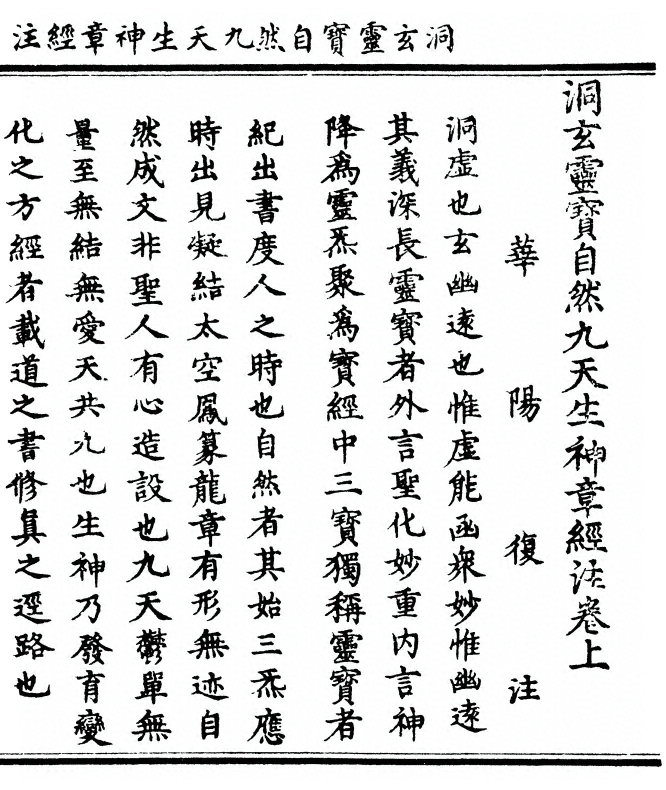 洞玄靈寶自然九天生神章經注
洞玄靈寶自然九天生神章經注卷上
華陽復注
洞虛也玄幽遠也惟虛能函衆妙惟幽遠
其義深長靈寶者外言聖化妙重內言神
降爲靈炁聚爲寶經中三寶獨稱靈寶者
紀出書度人之時也自然者其始三炁應
時出見凝結太空鳳篆龍章有形無迹自
然成文非聖人有心造設也九天鬱單無
量至無結無愛天共九也生神乃發育變
化之方經者載道之書修眞之逕路也